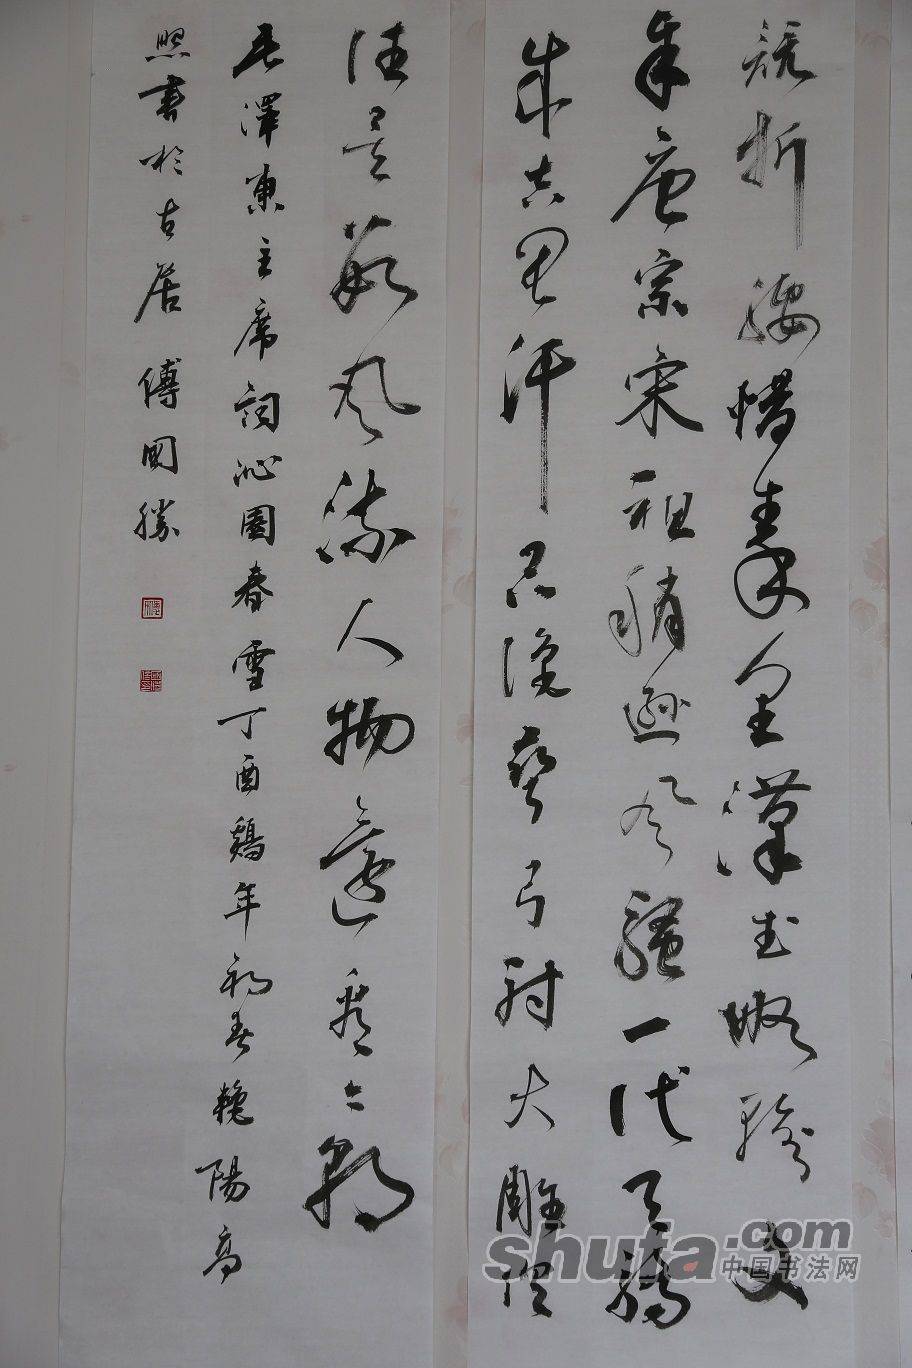 競折腰惜秦皇漢武略輸文
采唐宗宋祖稍遜風騷一代天驕
成吉思汗只識彎弓射大雕俱
往矣數風流人物還看今朝
毛澤東主席詞沁園春雪丁酉鷄年初春艷陽高
照書於古居傅國勝
shufa.com
中国书法网